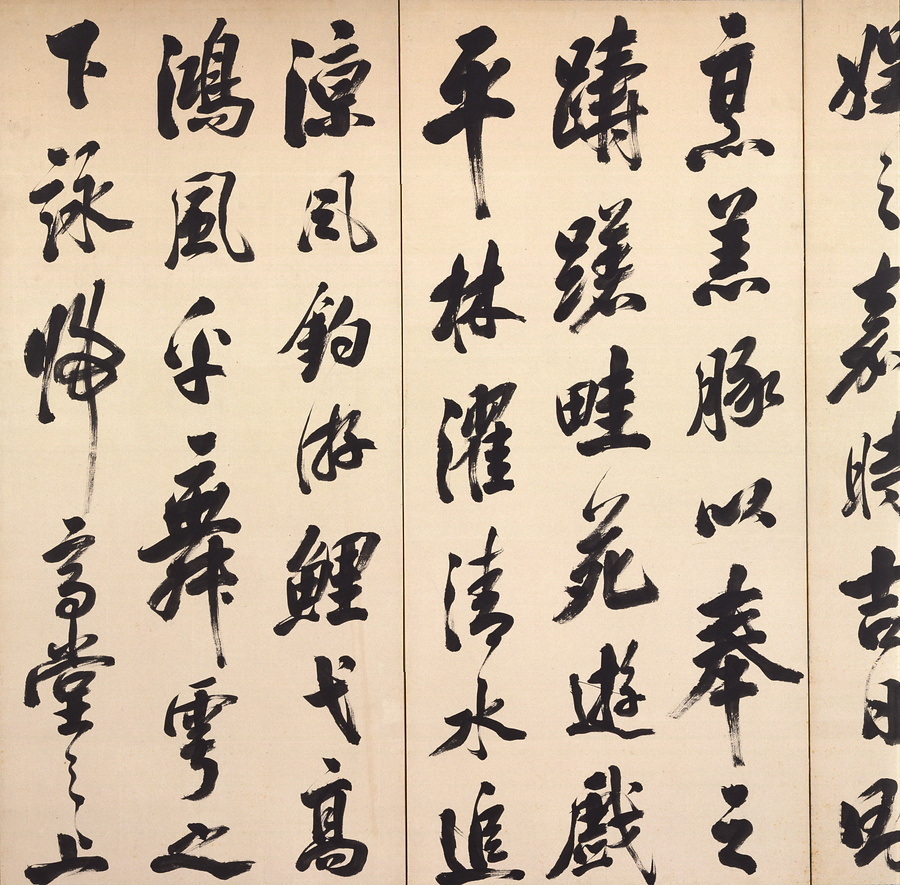 娛之嘉時吉日則
烹羔豚以奉之
躊躇畦苑遊戲
平林濯清水追
涼風釣游鯉弋高
鴻風乎舞雩之
下詠歸高堂之上